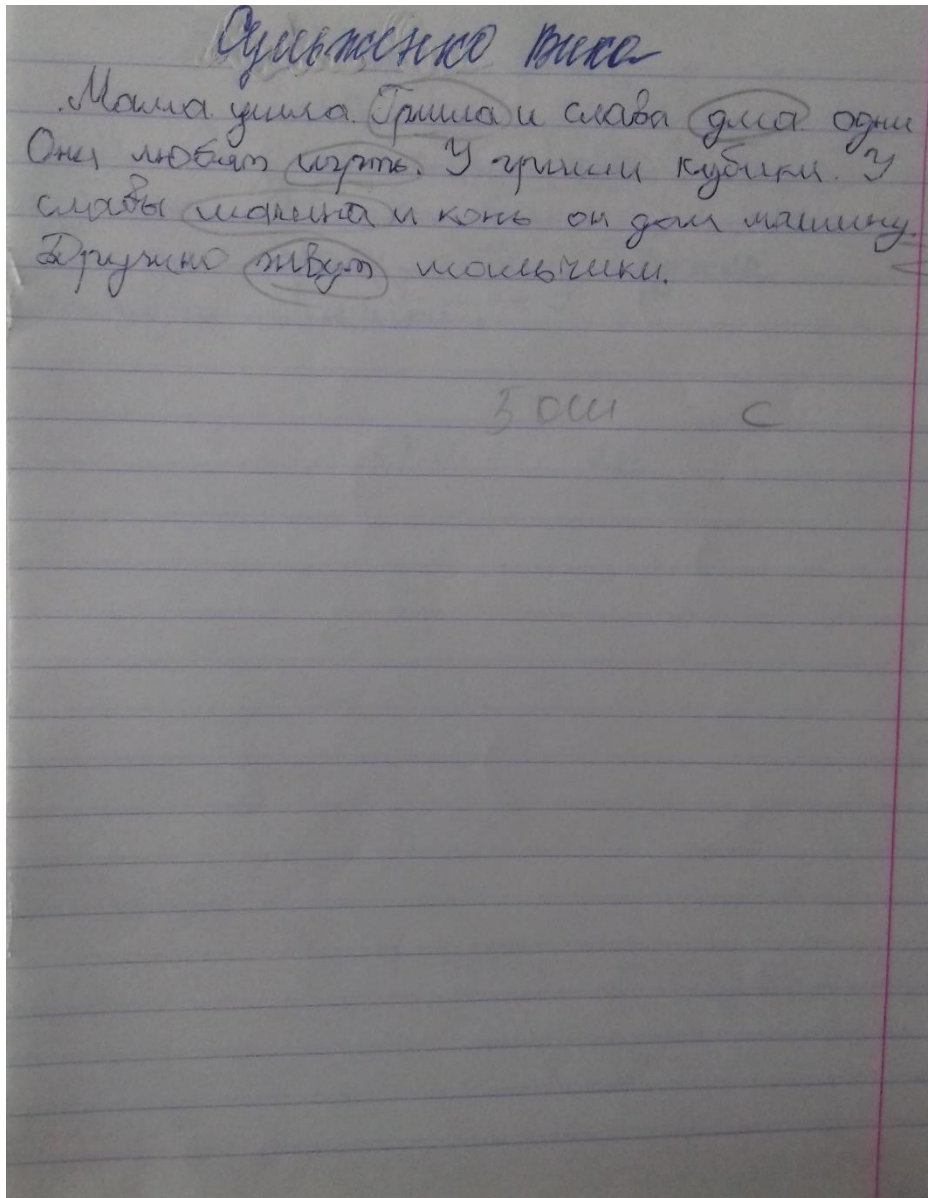 Сульженко Вика
Мама ушла. Гришла и слава дма одни
Они любят игрть. У гриши кубики. У
славы машина и конь он дал машину.
Дружно жвут мальчики.
3 ош с